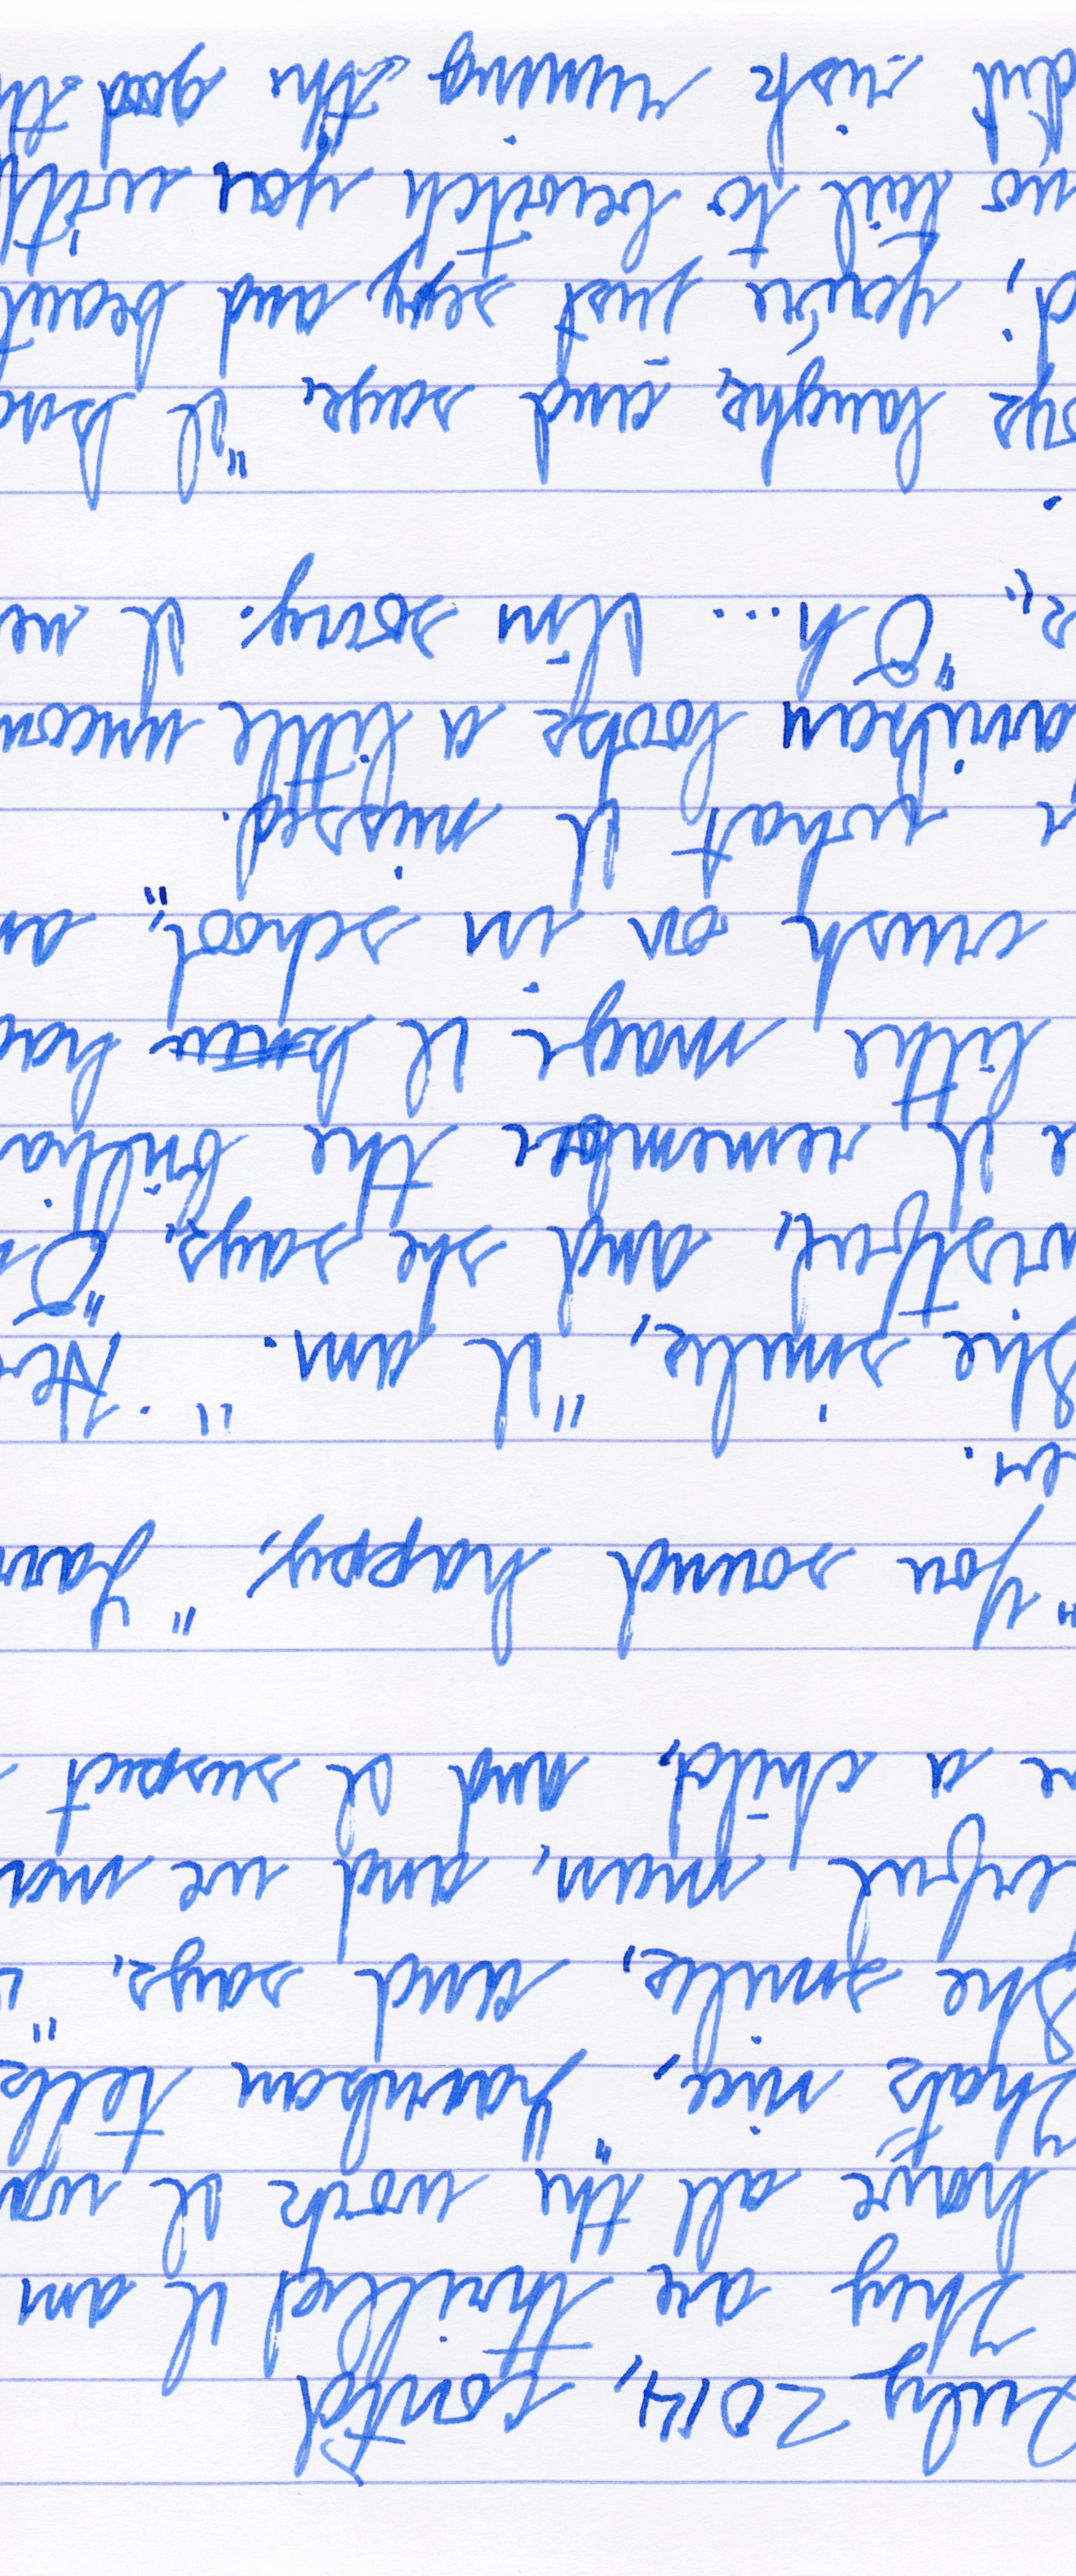 July 2014, cont'd
They are thrilled I am
have all the work I wa
That's nice," Harrison tells
She smiles, and says, "
erful man, and we wan
e a child, and I suspect
"You sound happy," Harr
en.
She smiles, "I am." Her
wistful, and she says, "On
e I remember the brillia
little mage I knew had
crush on in school," an
n what I missed.
arrison looks a little uncom
s, "Oh... I'm sorry. I ne
.
ys laughs and says, "I kno
d; you're just sexy and beaut
no tail to bewitch you with
dnt risk ruining the good th